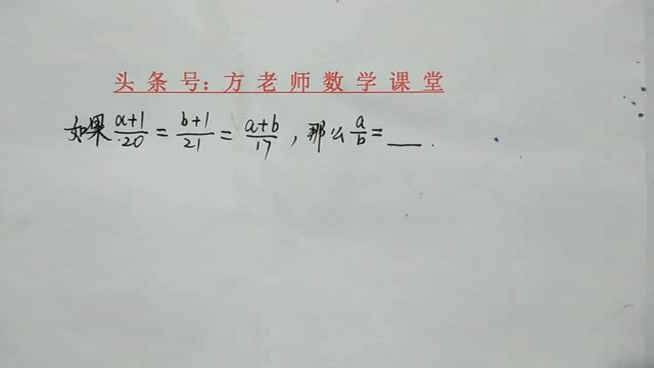 头条号:方老师数学课堂
如果 (a+1)/20 = (b+1)/21 = (a+b)/17 , 那么 a/b = __ .